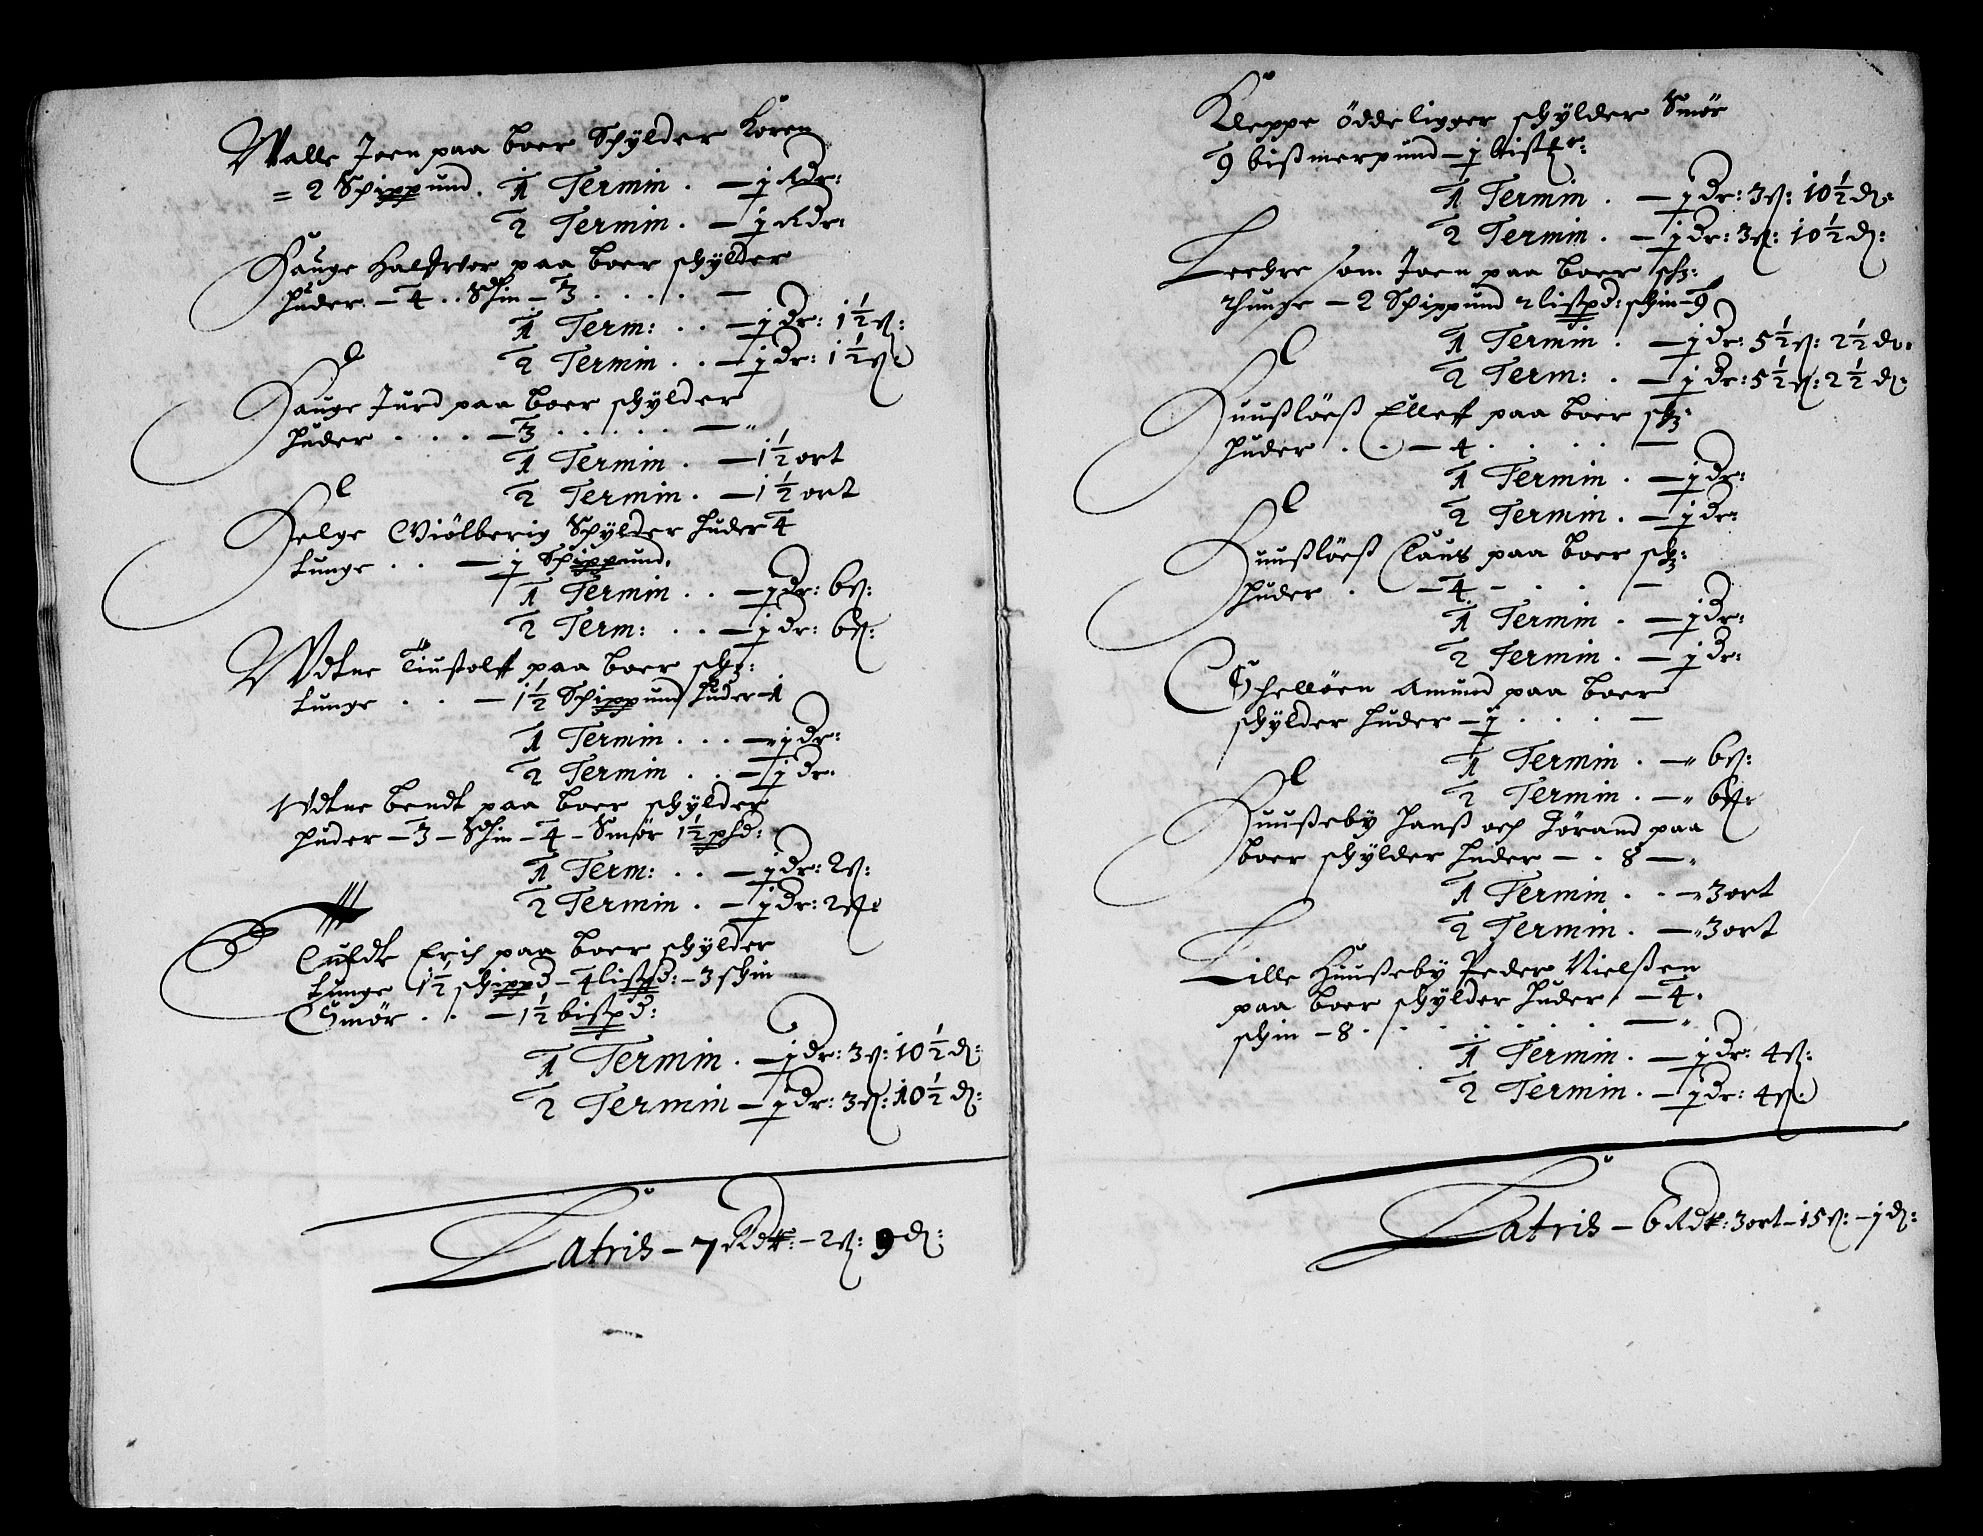 Walle Joen paa boer Schÿlder Koren
= 2 Schippund. 1 Termin . — j Rdr:
2 Termin . — j Rdr:
Hauge Halffvor paa boer schÿlder
huder — 4 . . Schin — 3 . . . . —
1 Term: . . — j dr: 1½ ß:
2 Termin . . — j dr: 1½ ß:
Hauge Jurd paa boer schÿlder
huder . . . . — 3 . . . . . — „
1 Termin . — 1½ ort
2 Termin . — 1½ ort
Helge Schÿlder huder 4
tunge . . — j Schippund.
1 Termin . . — j dr: 6 ß:
2 Term: . . — j dr: 6 ß:
Wdtne Tiustolff paa boer sch:
tunge . . — 1½ Schippund huder — 1
1 Termin . . . — j dr:
2 Termin . . — j dr:
Wdtne bendt paa boer schÿlder
huder — 3 — Schin — 4 — Smør 1½ pd:
1 Term: . . — j dr: 2 ß:
2 Termin . — j dr: 2 ß:
Erich paa boer schÿlder
tunge 1½ schippd — 4 lispd: — 3 schin
Smør . . — 1½ bispd:
1 Termin . — j dr: 3 ß: 10½ d:
2 Termin — j dr: 3 ß: 10½ d:
Latris — 7 Rdr: — 2 ß: 9 d:
Kleppe ödde ligger schÿlder Smör
9 bißmerpund — j
1 Termin . — j dr: 3 ß: 10½ d:
2 Termin . — j dr: 3 ß: 10½ d:
Leehre som Joen paa boer sch:
thunge — 2 Schippund 2 lispd: schin — 9
1 Termin . — j dr: 5½ ß: 2½ d:
2 Term: . — j dr: 5½ ß: 2½ d:
Huußlöeß Elleff paa boer sch:
huder . . — 4 . . . . —
1 Termin . — j dr:
2 Termin . — j dr:
Huußlöeß Claus paa boer sch:
huder . — 4 — . . . —
1 Termin . — j dr:
2 Termin . — j dr:
Schellöen Amund paa boer
schÿlder huder — j . . . —
1 Termin . — „ 6 ß:
2 Termin . — „ 6 ß:
Huußeby Hanß och Jörand paa
boer schÿlder huder — . 8 — „
1 Termin . . — „ 3 ort
2 Termin . — „ 3 ort
Lille Huußeby Peder Nielßen
paa boer schÿlder huder . — 4 .
schin — 8 . . . . . . . — „
1 Termin . — j dr: 4 ß:
2 Termin . — j dr: 4 ß:
Latris — 6 Rdr: 3 ort — 15 ß: — j d: